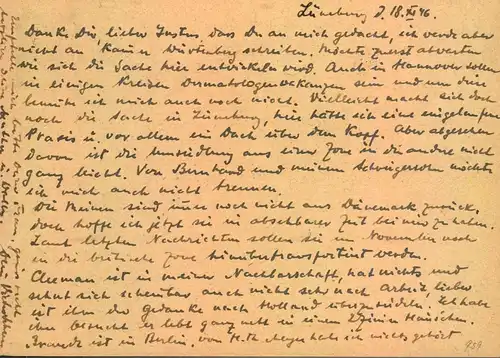 Lüneburg d. 18. XI 46
Danke Dir, lieber Justus, dass Du an mich gedacht, ich werde aber
nicht an Kamm Würtenberg schreiben. Möchte zuerst abwarten
wie sich die Sache hier entwickeln wird. Auch in Hannover sollen
in einigen Kreisen Dermatologenvakanzen sein und um diese
bemühe ich mich auch noch nicht. Vielleicht macht sich doch
noch die Sache in Lüneburg, hier hätte ich eine eingelaufene
Praxis u. vor allem ein Dach über dem Kopf. Aber abgesehen
davon ist die Umsiedlung aus einer Zone in die andre nicht
ganz leicht. Von Bernhard und meinem Schwiegersohn möchte
ich mich auch nicht trennen.
Die Meinen sind immer noch nicht aus Dänemark zurück,
doch hoffe ich jetzt sie in absehbarer Zeit bei mir zu haben.
Laut letzten Nachrichten sollen sie im November noch
in die britische Zone transportiert werden.
ist in meiner Nachbarschaft, hat nichts und
sehnt sich scheinbar auch nicht sehr nach Arbeit lieber
ist ihm der Gedanke nach Holland überzusiedeln. Ich habe
ihn besucht er lebt ganz nett in einem Häuschen.
ist in Berlin, von H. Th. Meyer habe ich nichts gehört
939